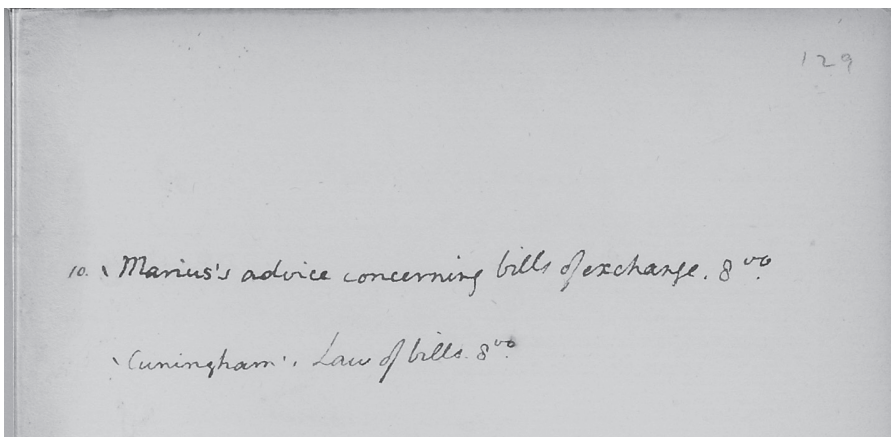 129
10. Marius's advice concerning bills of exchange. 8vo.
Cuningham's. Law of bills. 8vo.